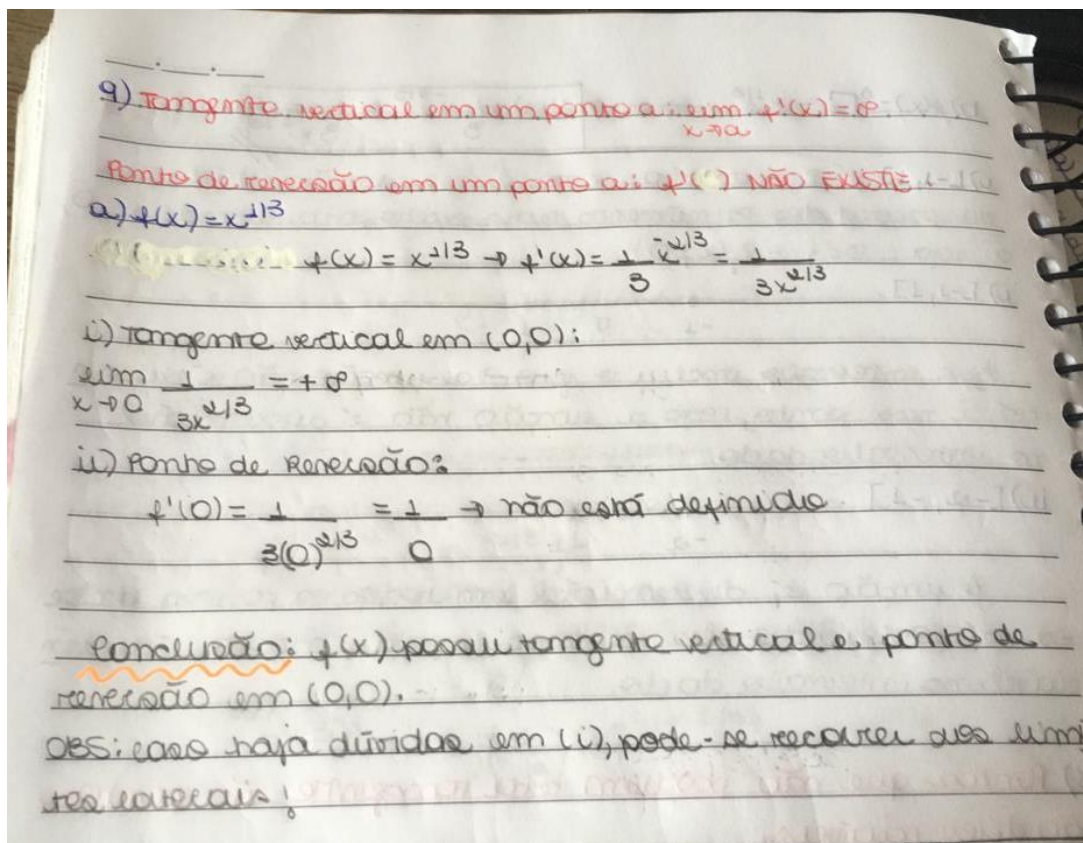 9) Tangente vertical em um ponto a: lim x→a f'(x) = ∞
Ponto de reversão em um ponto a: f'( ) NÃO EXISTE
a) f(x) = x^1/3
f(x) = x^1/3 → f'(x) = 1/3 x^-2/3 = 1/3x^2/3
i) Tangente vertical em (0,0):
lim x→0 1/3x^2/3 = +∞
ii) Ponto de Reversão:
f'(0) = 1/3(0)^2/3 = 1/0 → não está definido
Conclusão: f(x) possui tangente vertical e ponto de
reversão em (0,0).
OBS: caso haja dúvidas em (i), pode-se recorrer aos limi
tes laterais!